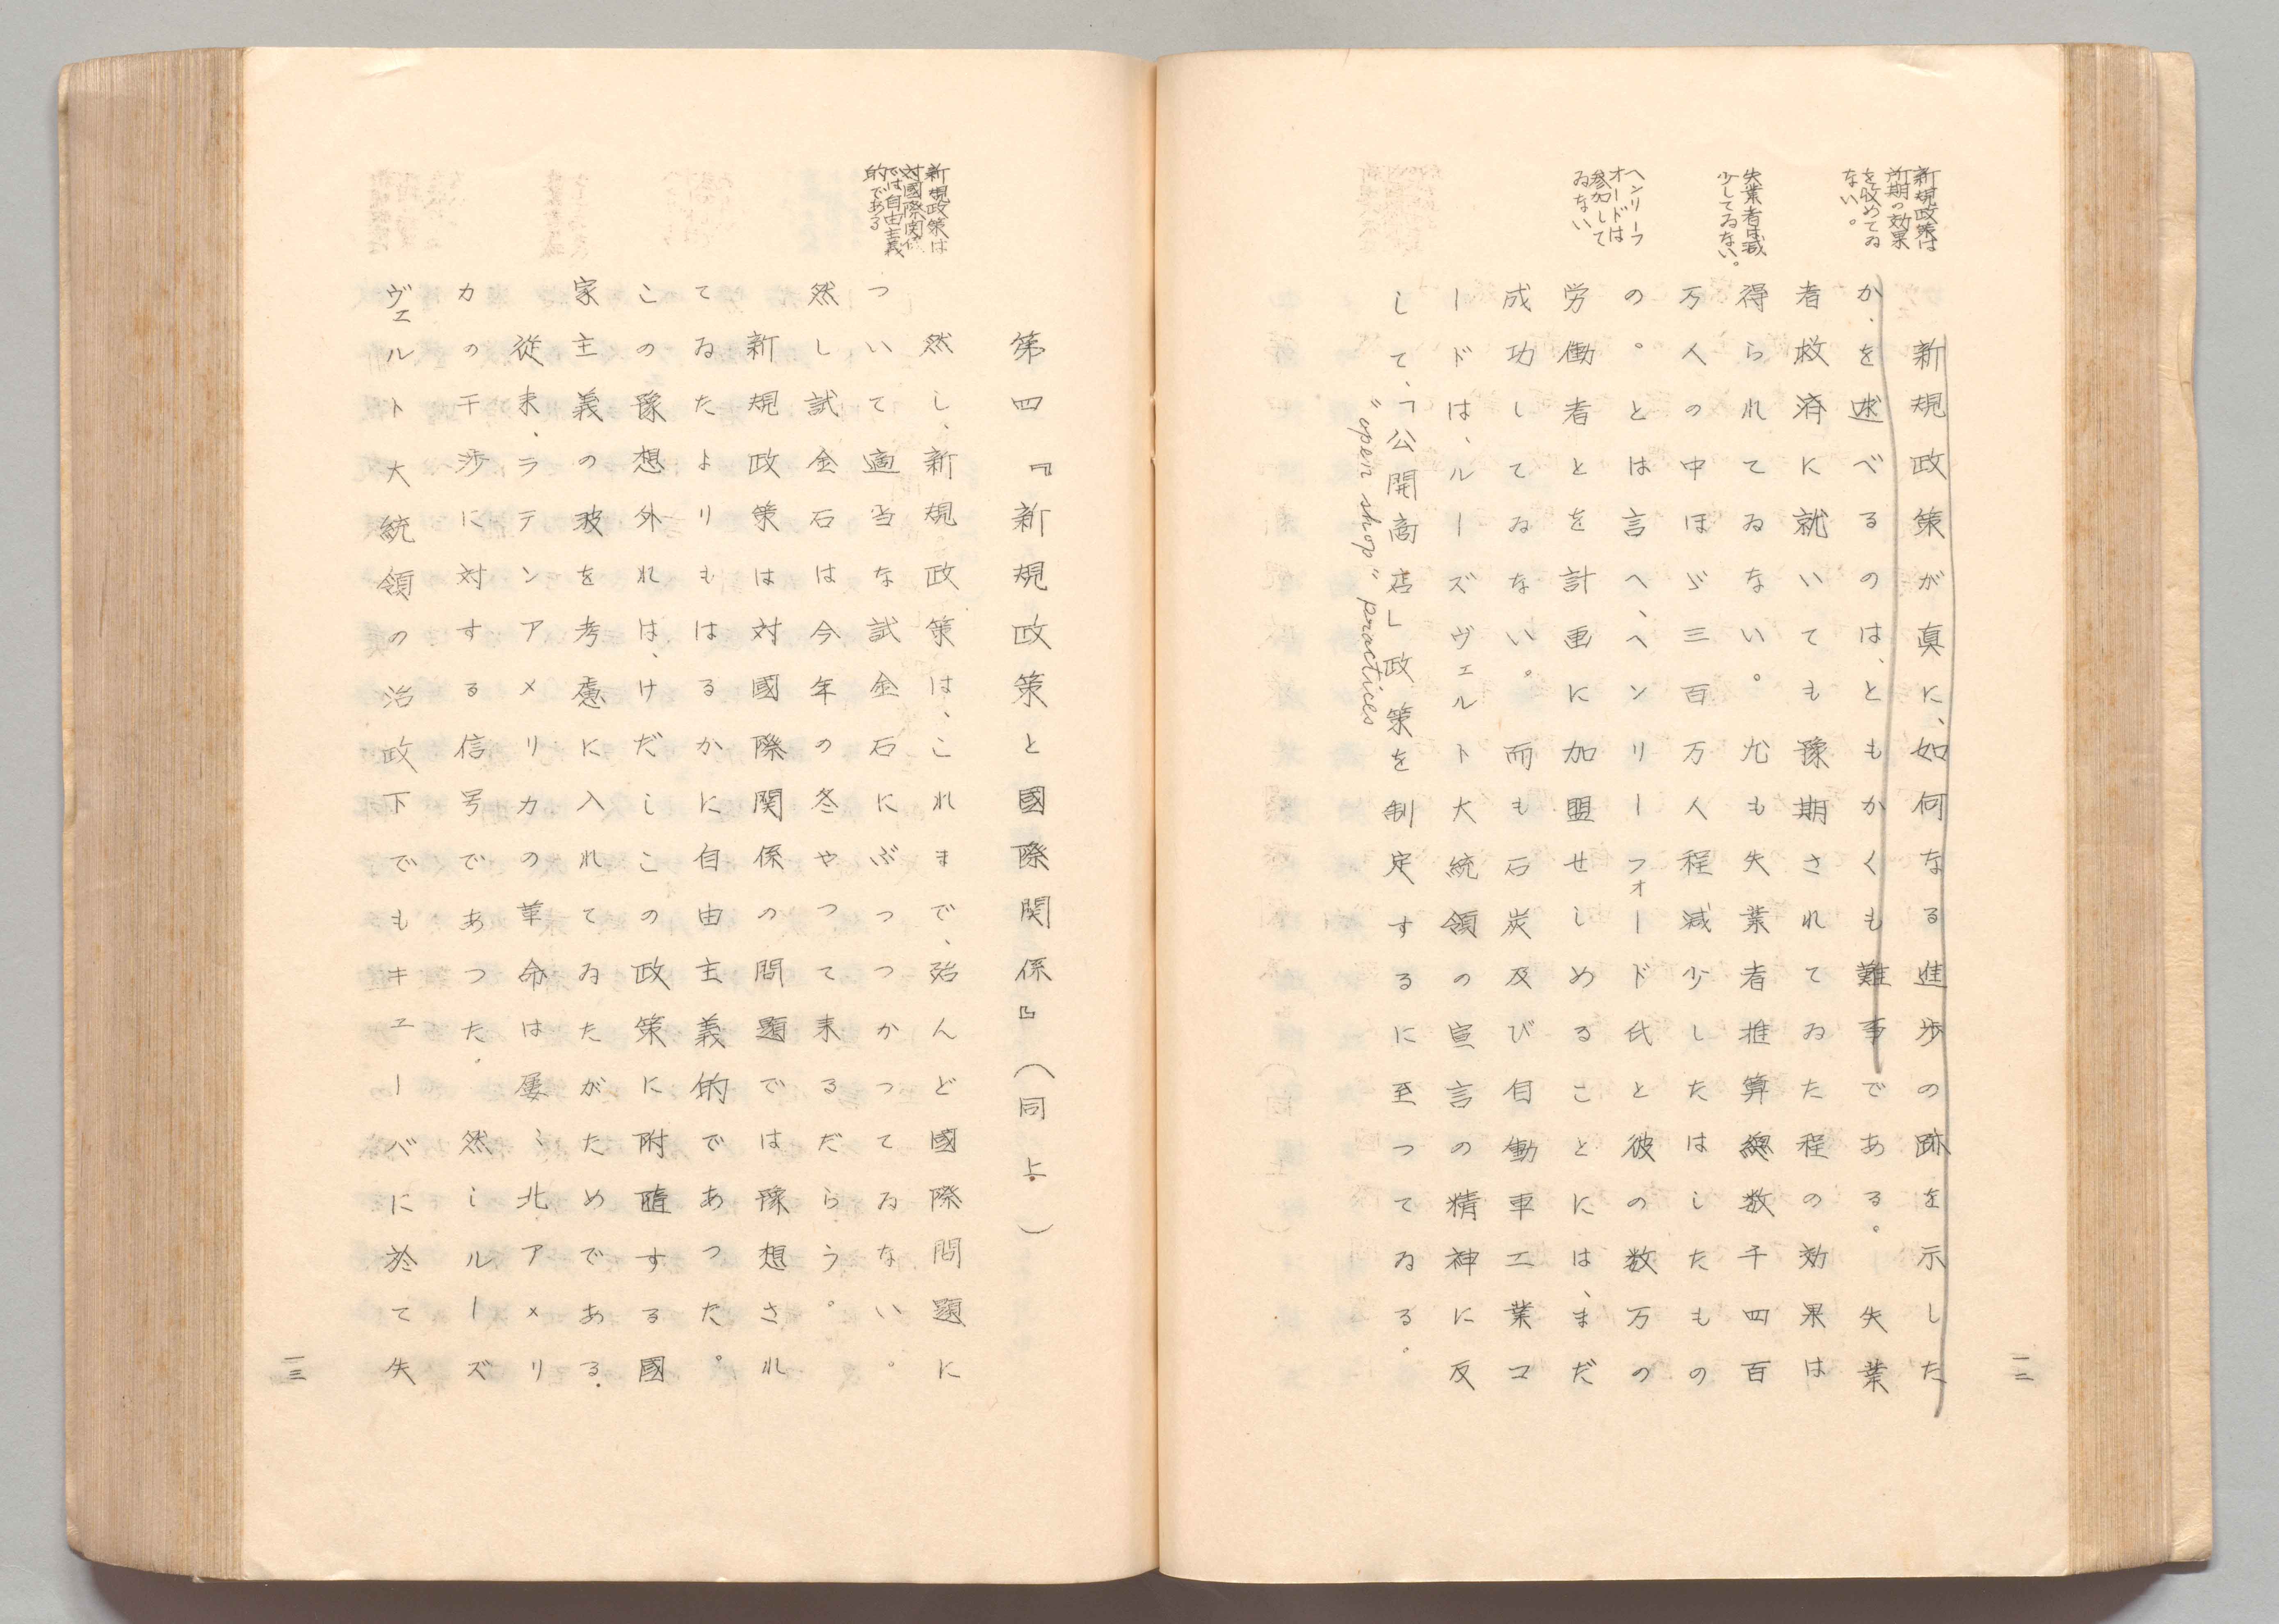 新規政策は
所期の効果
を収めてゐ
ない。
失業者は減
少してゐない。
ヘンリーフ
オードは
参加して
ゐない
新規政策が真に、如何なる進歩の跡を示した
か、を述べるのは、ともかくも難事である。失業
者救済に就いても豫期されてゐた程の効果は
得られてゐない。尤も失業者推算総数千四百
万人の中ほゞ三百万人程減少したはしたもの
の。とは言へ、ヘンリーフォード氏と彼の数万の
労働者とを計画に加盟せしめることには、まだ
成功してゐない。而も石炭及び自働車工業コ
ードは、ルーズヴェルト大統領の宣言の精神に反
して、「公開商店」政策を制定するに至つてゐる。
"open shop" practices
一二
新規政策は
対國際関係
では自由主義
的である
第四『新規政策と國際関係』(同上)
然し、新規政策は、これまで、殆んど國際問題に
ついて適当な試金石にぶつつかつてゐない。
然し試金石は今年の冬やつて来るだらう。
新規政策は対國際関係の問題では豫想され
てゐたよりもはるかに自由主義的であつた。
この豫想外れは、けだしこの政策に附随する國
家主義の波を考慮に入れてゐたがためである.
従来、ラテンアメリカの革命は屡〻北アメリ
カの干渉に対する信号であつた.然しルーズ
ヴェルト大統領の治政下でもキューバに於て失
一三